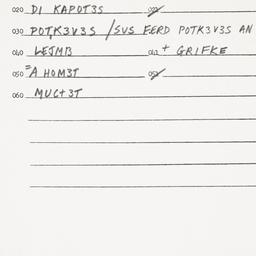 020 DI KAPOT3S 022
030 POTK3V3S / SVS FERD POTK3V3S AN
040 LEJM3 042 + GRIFKE
050 = A HOM3T 052
060 MUC+3T